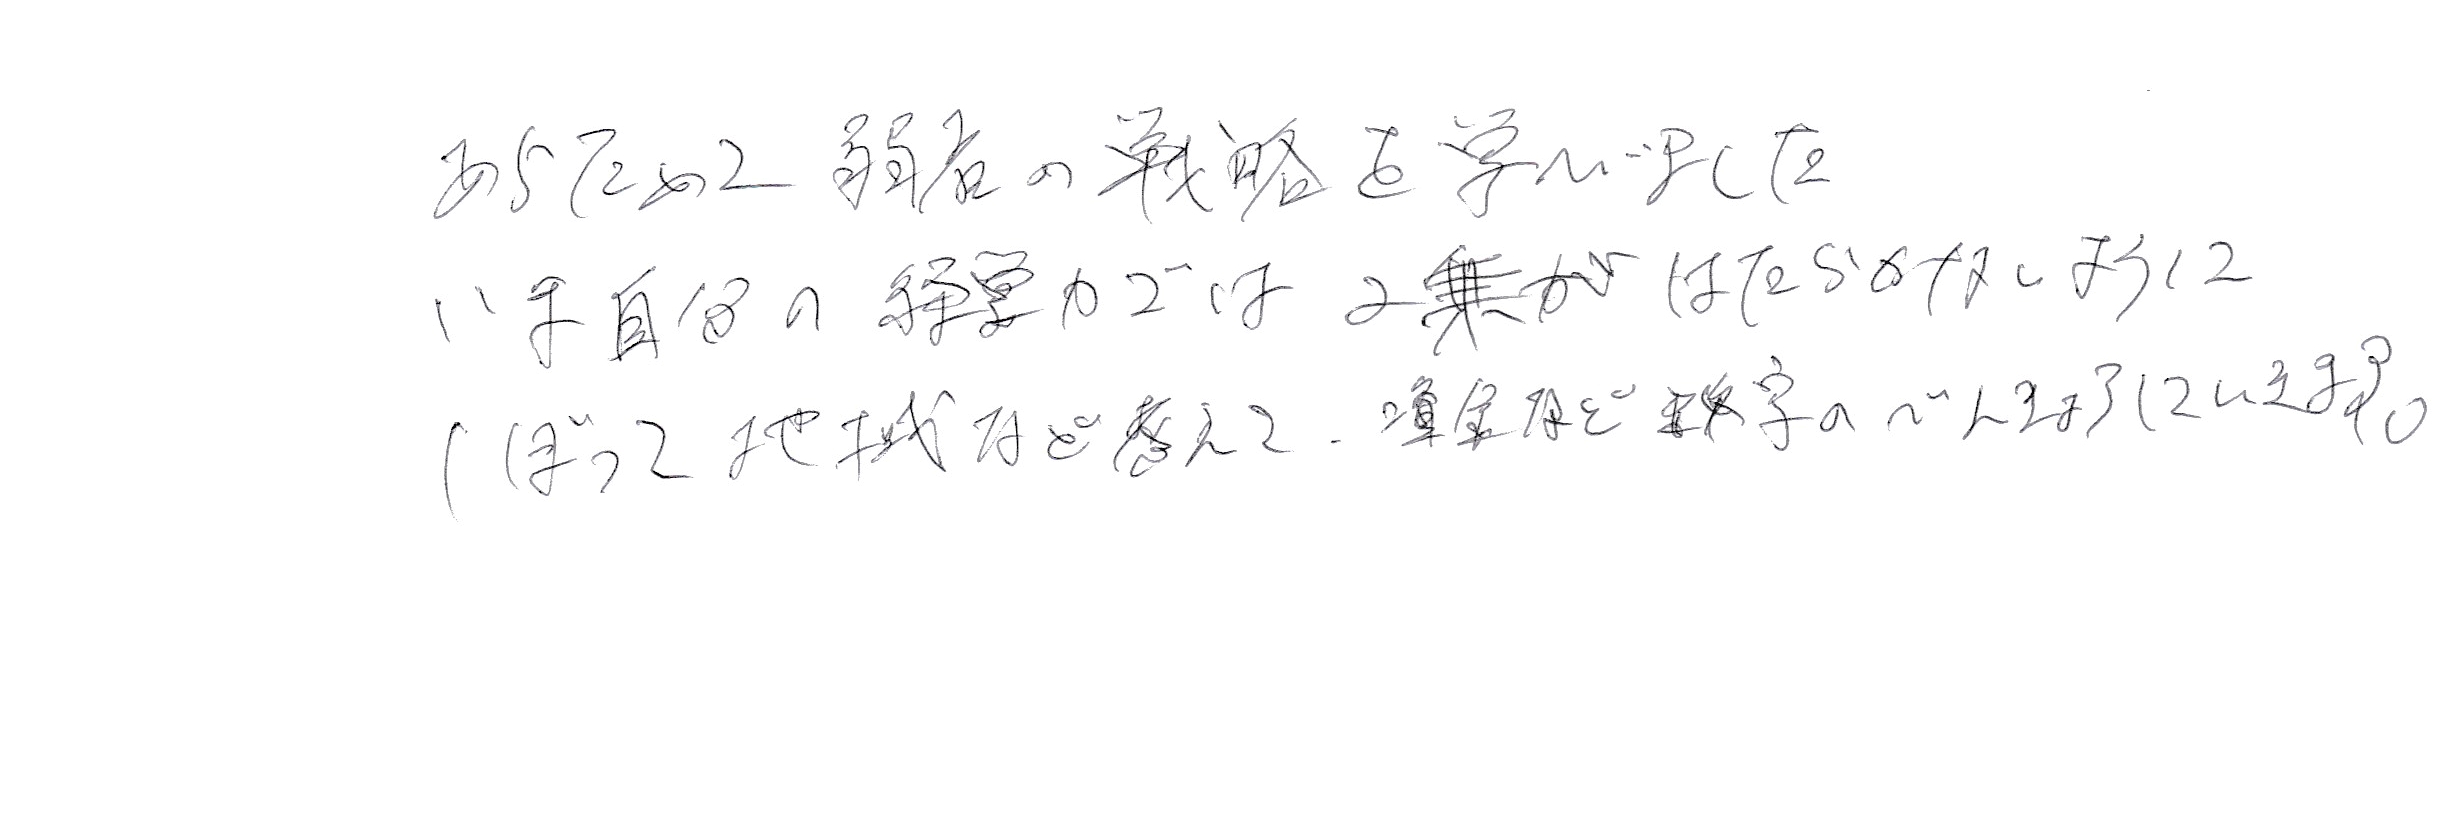 あらためて弱者の戦略を学べました
いま自分の経営力では2乗がはたらかないように
しぼって地域など考えて、 など数字の ように います。